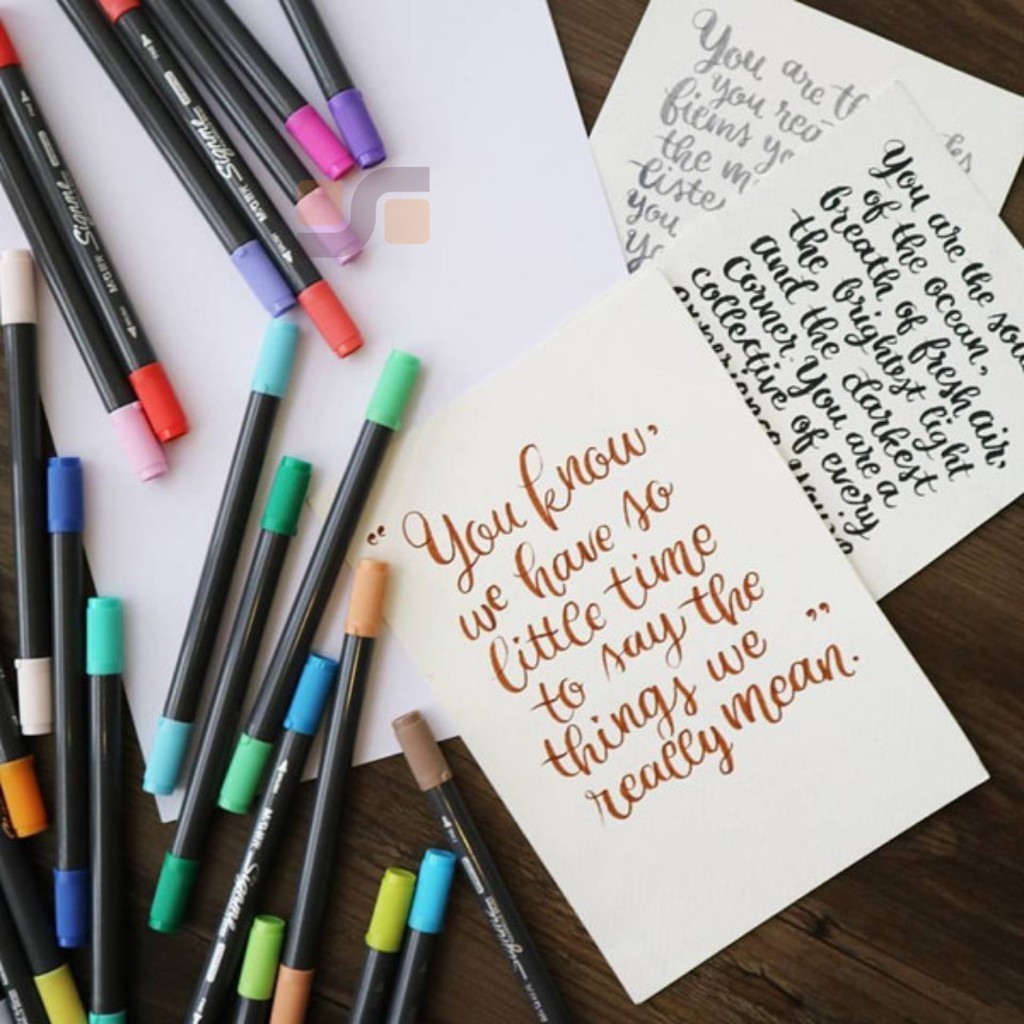 You are th
you rea
fiems yo
the m
liste
you
Yo
You are the sou
of the ocean,
breath of fresh air,
the brightest light
and the darkest
corner. You are a
collective of every
experience you've
“You know,
we have so
little time
to say the
things we
really mean.”
Signme
M&G
Signme
M&G
Signme
M&G
Signme